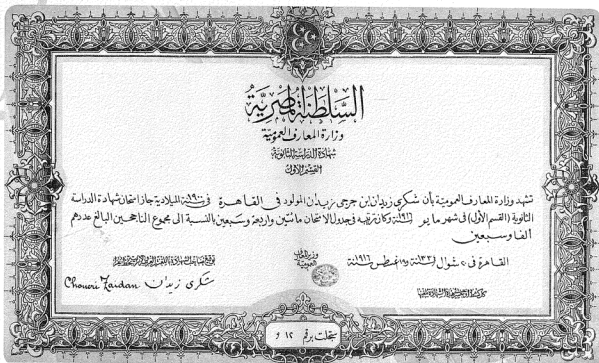 السلطنة المصرية
وزارة المعارف العمومية
شهادة الدراسة الثانوية
القسم الأول
تشهد وزارة المعارف العمومية بأن شكري زيدان ابن جرجي زيدان المولود في القاهرة في سنة ١٩٠٠ الميلادية جاز امتحان شهادة الدراسة
الثانوية (القسم الأول) في شهر مايو سنة ١٩١٦ وكان ترتيبه في جدول الامتحان مائتين واربعة وسبعين بالنسبة الى مجموع الناجحين البالغ عددهم
الفا وسبعين
القاهرة في ٢٠ شوال سنة ١٣٣٤ ١٩ اغسطس سنة ١٩١٦
وزير المعارف
العمومية
شكري زيدان Choucri Zaidan
سجلت برقم ١٢ و